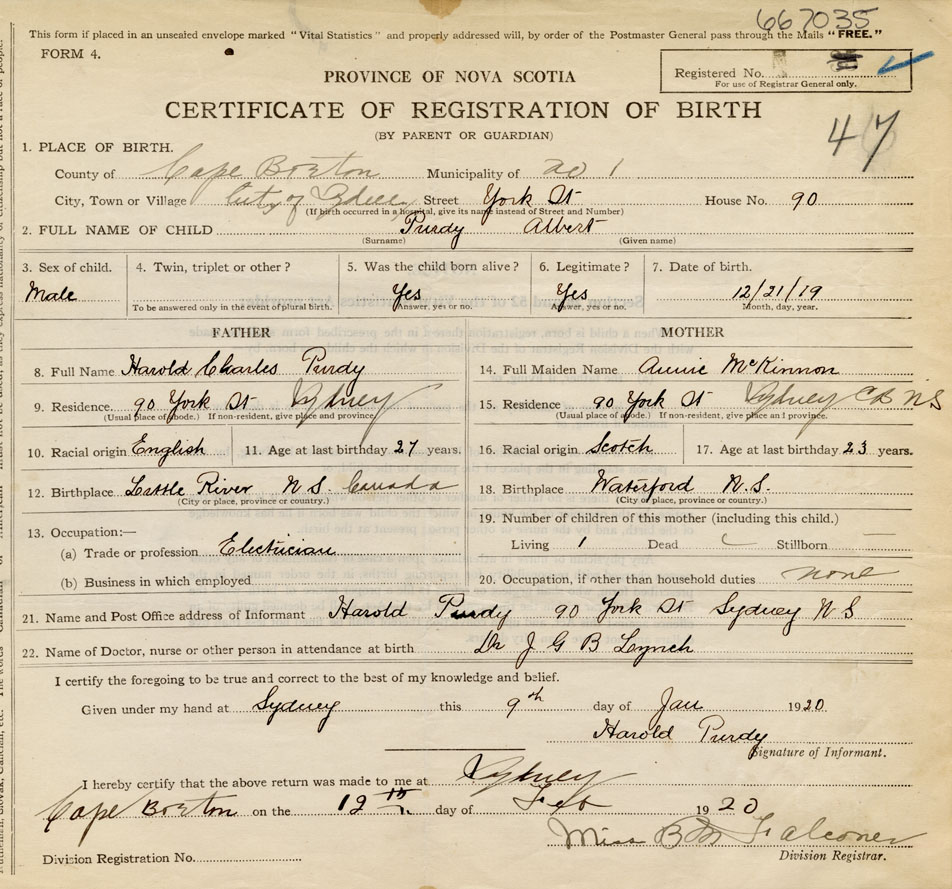 667035
This form if placed in an unsealed envelope marked "Vital Statistics" and properly addressed will, by order of the Postmaster General pass through the Mails "FREE."
FORM 4.
Registered No.
For use of Registrar General only.
PROVINCE OF NOVA SCOTIA
CERTIFICATE OF REGISTRATION OF BIRTH
(BY PARENT OR GUARDIAN)
47
1. PLACE OF BIRTH.
County of Cape Breton Municipality of no 1
City, Town or Village City of Sydney Street York St House No. 90
(If birth occurred in a hospital, give its name instead of Street and Number)
2. FULL NAME OF CHILD Purdy Albert
(Surname) (Given name)
3. Sex of child. 4. Twin, triplet or other? 5. Was the child born alive? 6. Legitimate? 7. Date of birth.
Male Yes Yes 12/21/19
To be answered only in the event of plural birth. Answer, yes or no. Answer, yes or no. Month, day, year.
FATHER MOTHER
8. Full Name Harold Charles Purdy 14. Full Maiden Name Annie McKinnon
9. Residence. 90 York St Sydney 15. Residence 90 York St Sydney CB NS
(Usual place of abode.) If non-resident, give place and province. (Usual place of abode.) If non-resident, give place and province.
10. Racial origin English 11. Age at last birthday 27 years. 16. Racial origin Scotch 17. Age at last birthday 23 years.
12. Birthplace Little River N.S. Canada 18. Birthplace Waterford N.S.
(City or place, province or country.) (City or place, province or country.)
13. Occupation:— 19. Number of children of this mother (including this child.)
(a) Trade or profession Electrician Living 1 Dead Stillborn
(b) Business in which employed 20. Occupation, if other than household duties none
21. Name and Post Office address of Informant Harold Purdy 90 York St Sydney N S
22. Name of Doctor, nurse or other person in attendance at birth Dr J G B Lynch
I certify the foregoing to be true and correct to the best of my knowledge and belief.
Given under my hand at Sydney this 9th day of Jan 1920.
Harold Purdy
Signature of Informant.
I hereby certify that the above return was made to me at Sydney
Cape Breton on the 12th day of Feb 1920
Miss B M Falconer
Division Registration No. Division Registrar.